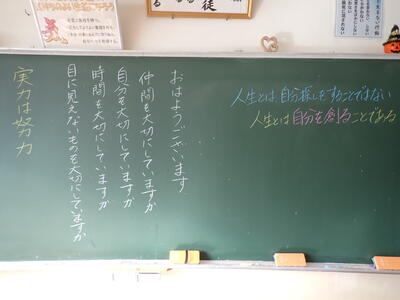 人生とは、自分探しをすることではない
人生とは自分を創ることである
おはようございます
仲間を大切にしていますか
自分を大切にしていますか
時間を大切にしていますか
目に見えないものを大切にしていますか
実力は努力
徒